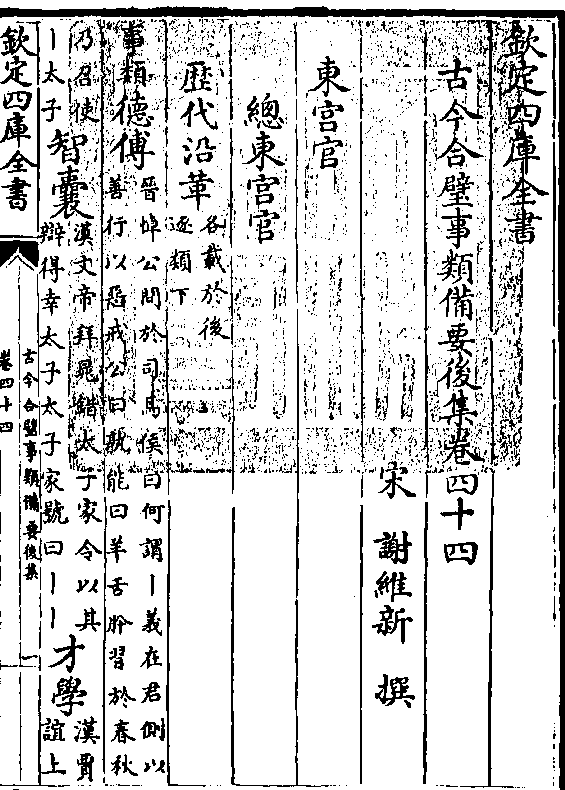 欽定四庫全書
古今合璧事類備要後集卷四十四
宋 謝維新 撰
東宮官
總東宮官
歷代沿革 各載於後逐類下
事類 德傅 晉悼公問於司馬侯曰何謂丨義在君側以善行以惡戒公曰孰能曰羊舌肸習於春秋
乃召使丨太子 智囊 漢文帝拜晁錯太子家令以其辯得幸太子太子家號曰丨丨 才學 漢賈誼上
欽定四庫全書
古今合璧事類備要後集
卷四十四
一